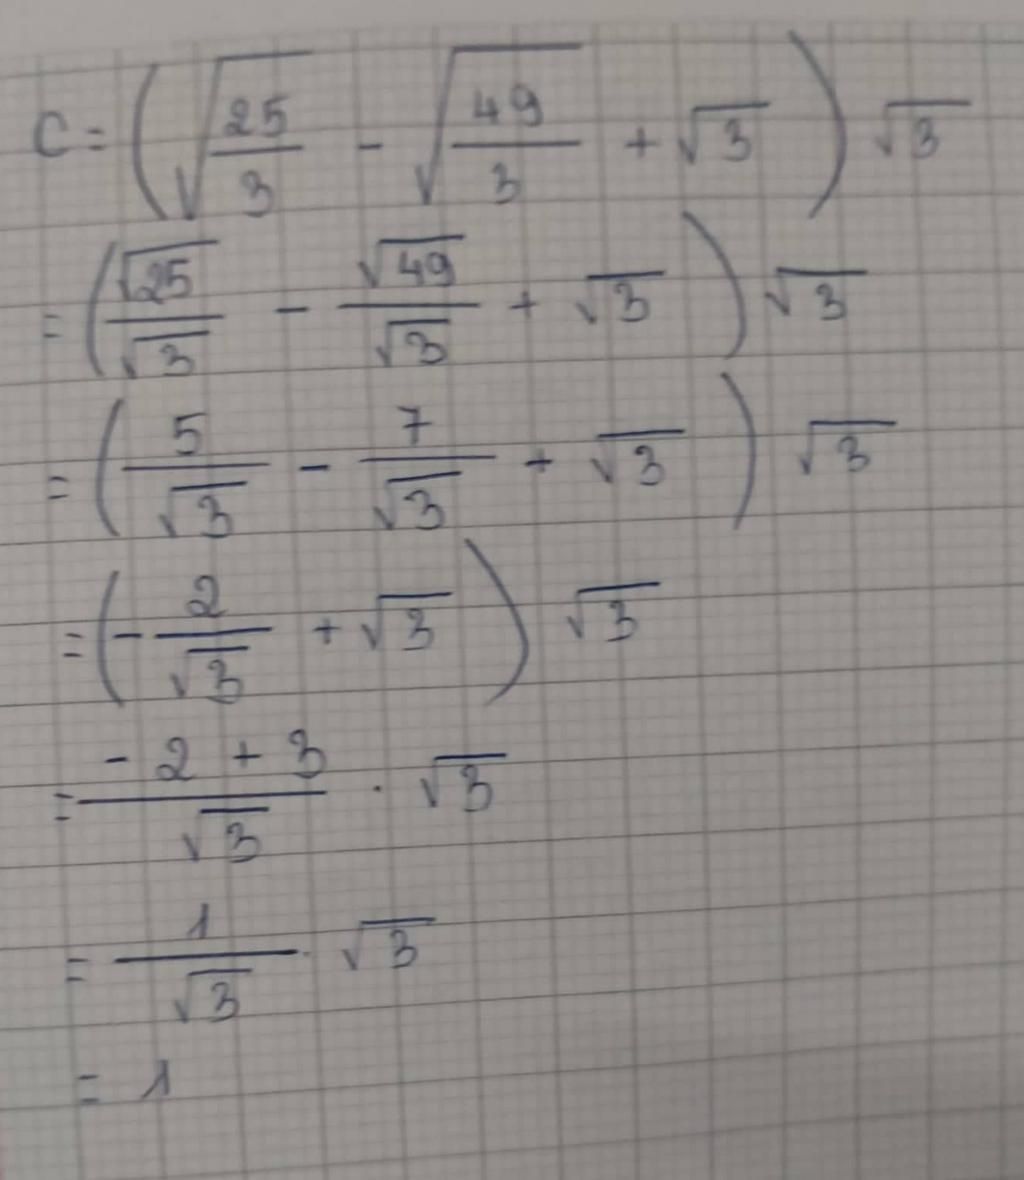 C = (√(25/3) - √(49/3) + √3) √3
= (√25/√3 - √49/√3 + √3) √3
= (5/√3 - 7/√3 + √3) √3
= (-2/√3 + √3) √3
= (-2 + 3)/√3 · √3
= 1/√3 · √3
= 1